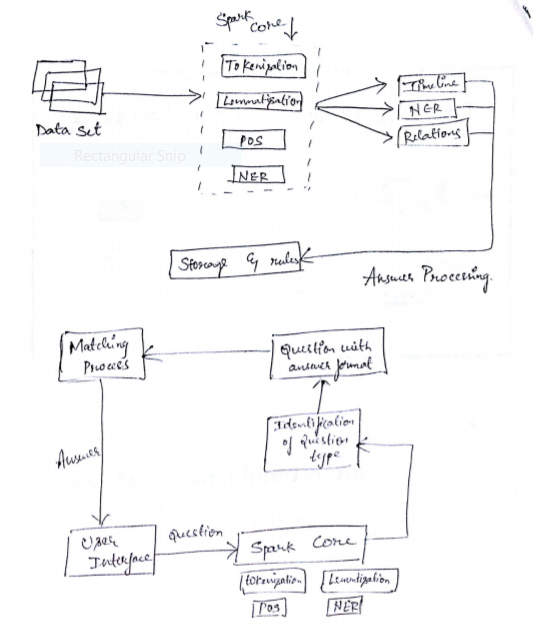 Spark
Core
Tokenization
Lemmatization
POS
NER
Data Set
Rectangular Snip
Timeline
NER
Relations
Storage of rules
Answer Processing.
Matching
Process
Question with
answer format
Identification
of Question
type
Answer
User
Interface
Question
Spark Core
tokenization
Lemmatization
POS
NER